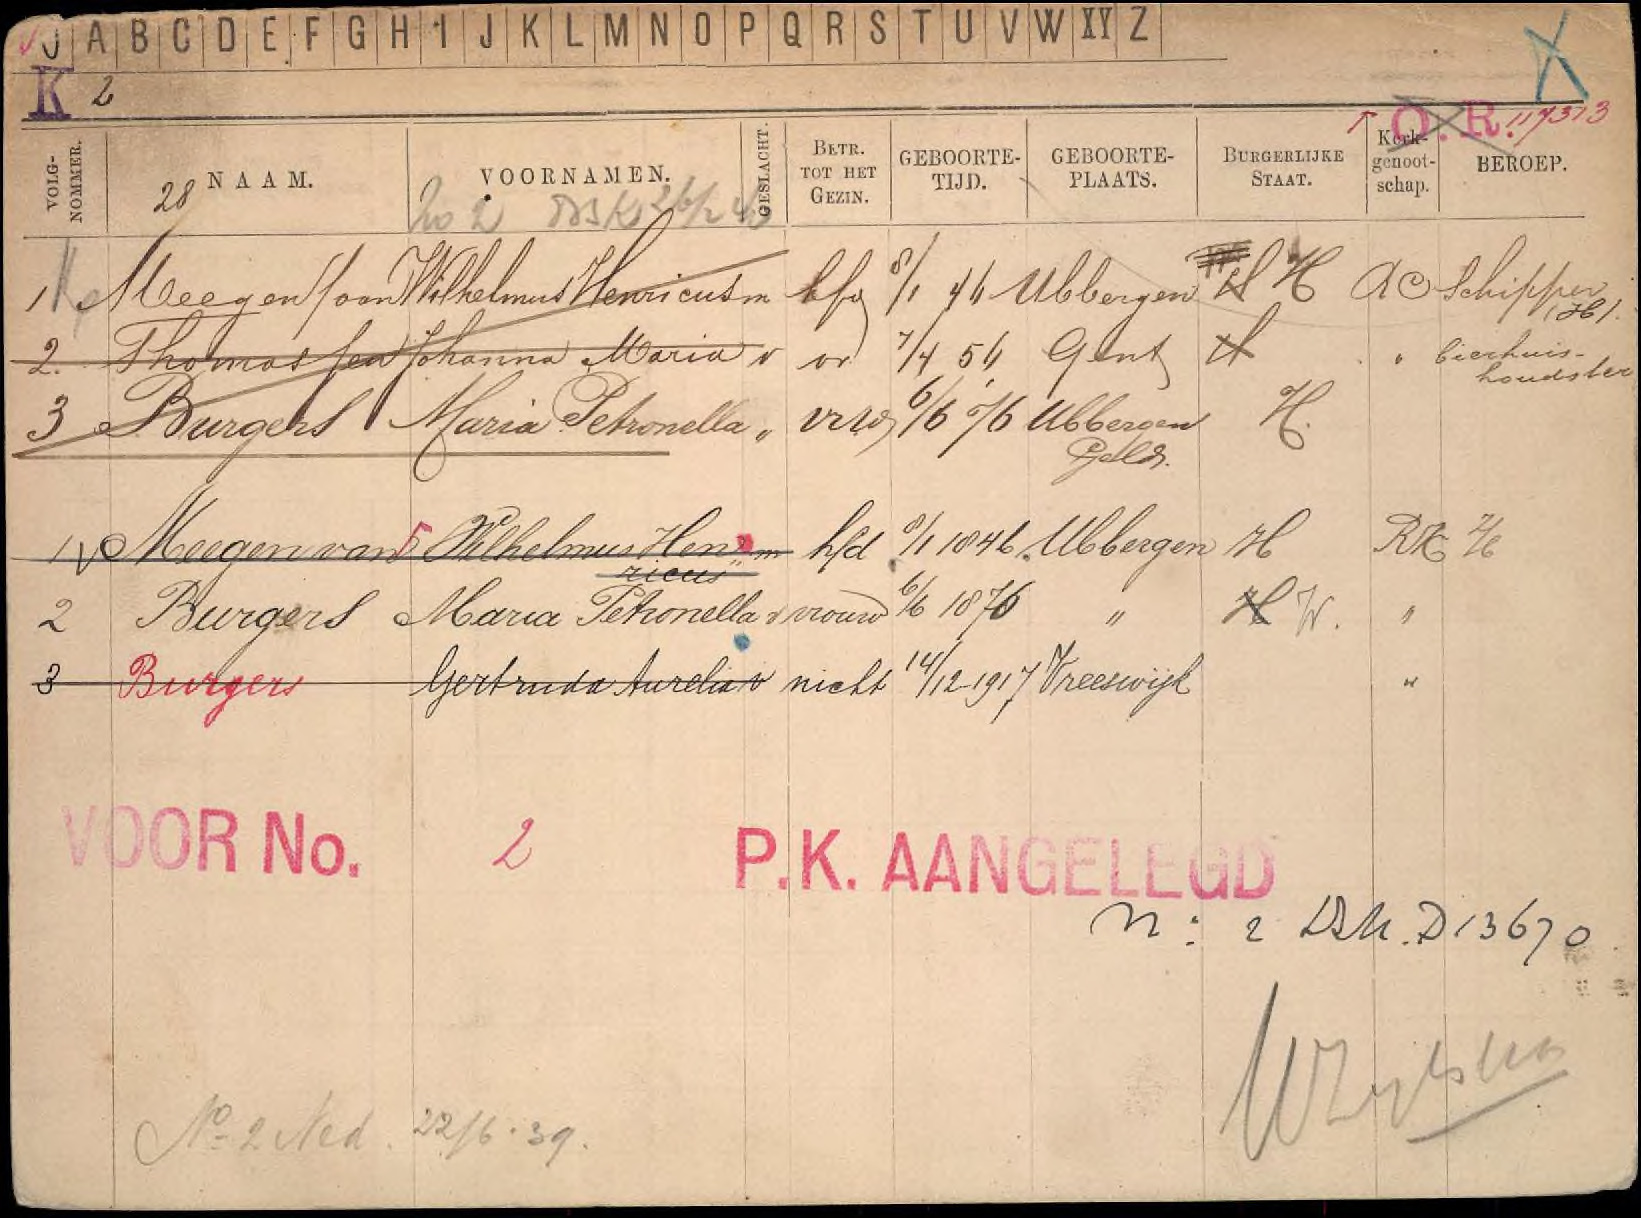 J A B C D E F G H I J K L M N O P Q R S T U V W XY Z
K 2
O.R. 117313
VOLG-NOMMER. NAAM. VOORNAMEN. GESLACHT. BETR. TOT HET GEZIN. GEBOORTE-TIJD. GEBOORTE-PLAATS. BURGERLIJKE STAAT. Kerk-genoot-schap. BEROEP.
28 No 2
1 Meegen van Wilhelmus Henricus m hfd 8/1 46 Ubbergen H RC Schipper
2. Thomassen Johanna Maria v vr 7/4 56 Gent " bierhuis-
houdster
3 Burgers Maria Petronella " vrw 6/6 76 Ubbergen H.
Geld.
1 Meegen van Wilhelmus Hen- m hfd 8/1 1846 Ubbergen H RK
ricus
2 Burgers Maria Petronella v vrouw 6/6 1876 " H W. "
3 Burgers Gertruda Aurelia v nicht 14/12-1917 Vreeswijk "
VOOR No. 2 P.K. AANGELEGD
N: 2 D13670
No 2 Ned. 22/6.39.